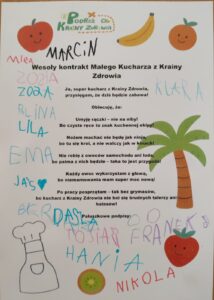 Podróż Do
Krainy Zdrowia
MARCIN
Wesoły kontrakt Małego Kucharza z Krainy
Zdrowia
ZOZIA
KLARA
Ja, super kucharz z Krainy Zdrowia,
przysięgam, że dziś będzie zabawa!
ZOZIA
Obiecuję, że:
ALINA
Umyję rączki – nie na niby!
Bo czyste ręce to znak kucharskiej
LILA
Nożem machać nie będę jak ninja,
bo tu się kroi, a nie walczy jak w kinach!
EMA
Nie robię z owoców samochodu ani lodu,
bo palma z nich będzie – taka to jest przygoda!
JAŚ
Każdy owoc wykorzystam z głową,
bo niemarnowanie mam super moc nową!
Po pracy posprzątam – tak bez grymasów,
bo kucharz z Krainy Zdrowia nie boi się brudnych talerzy ani
DASZA
Pałaszkowe podpisy:
FRANEK
HANIA
NIKOLA